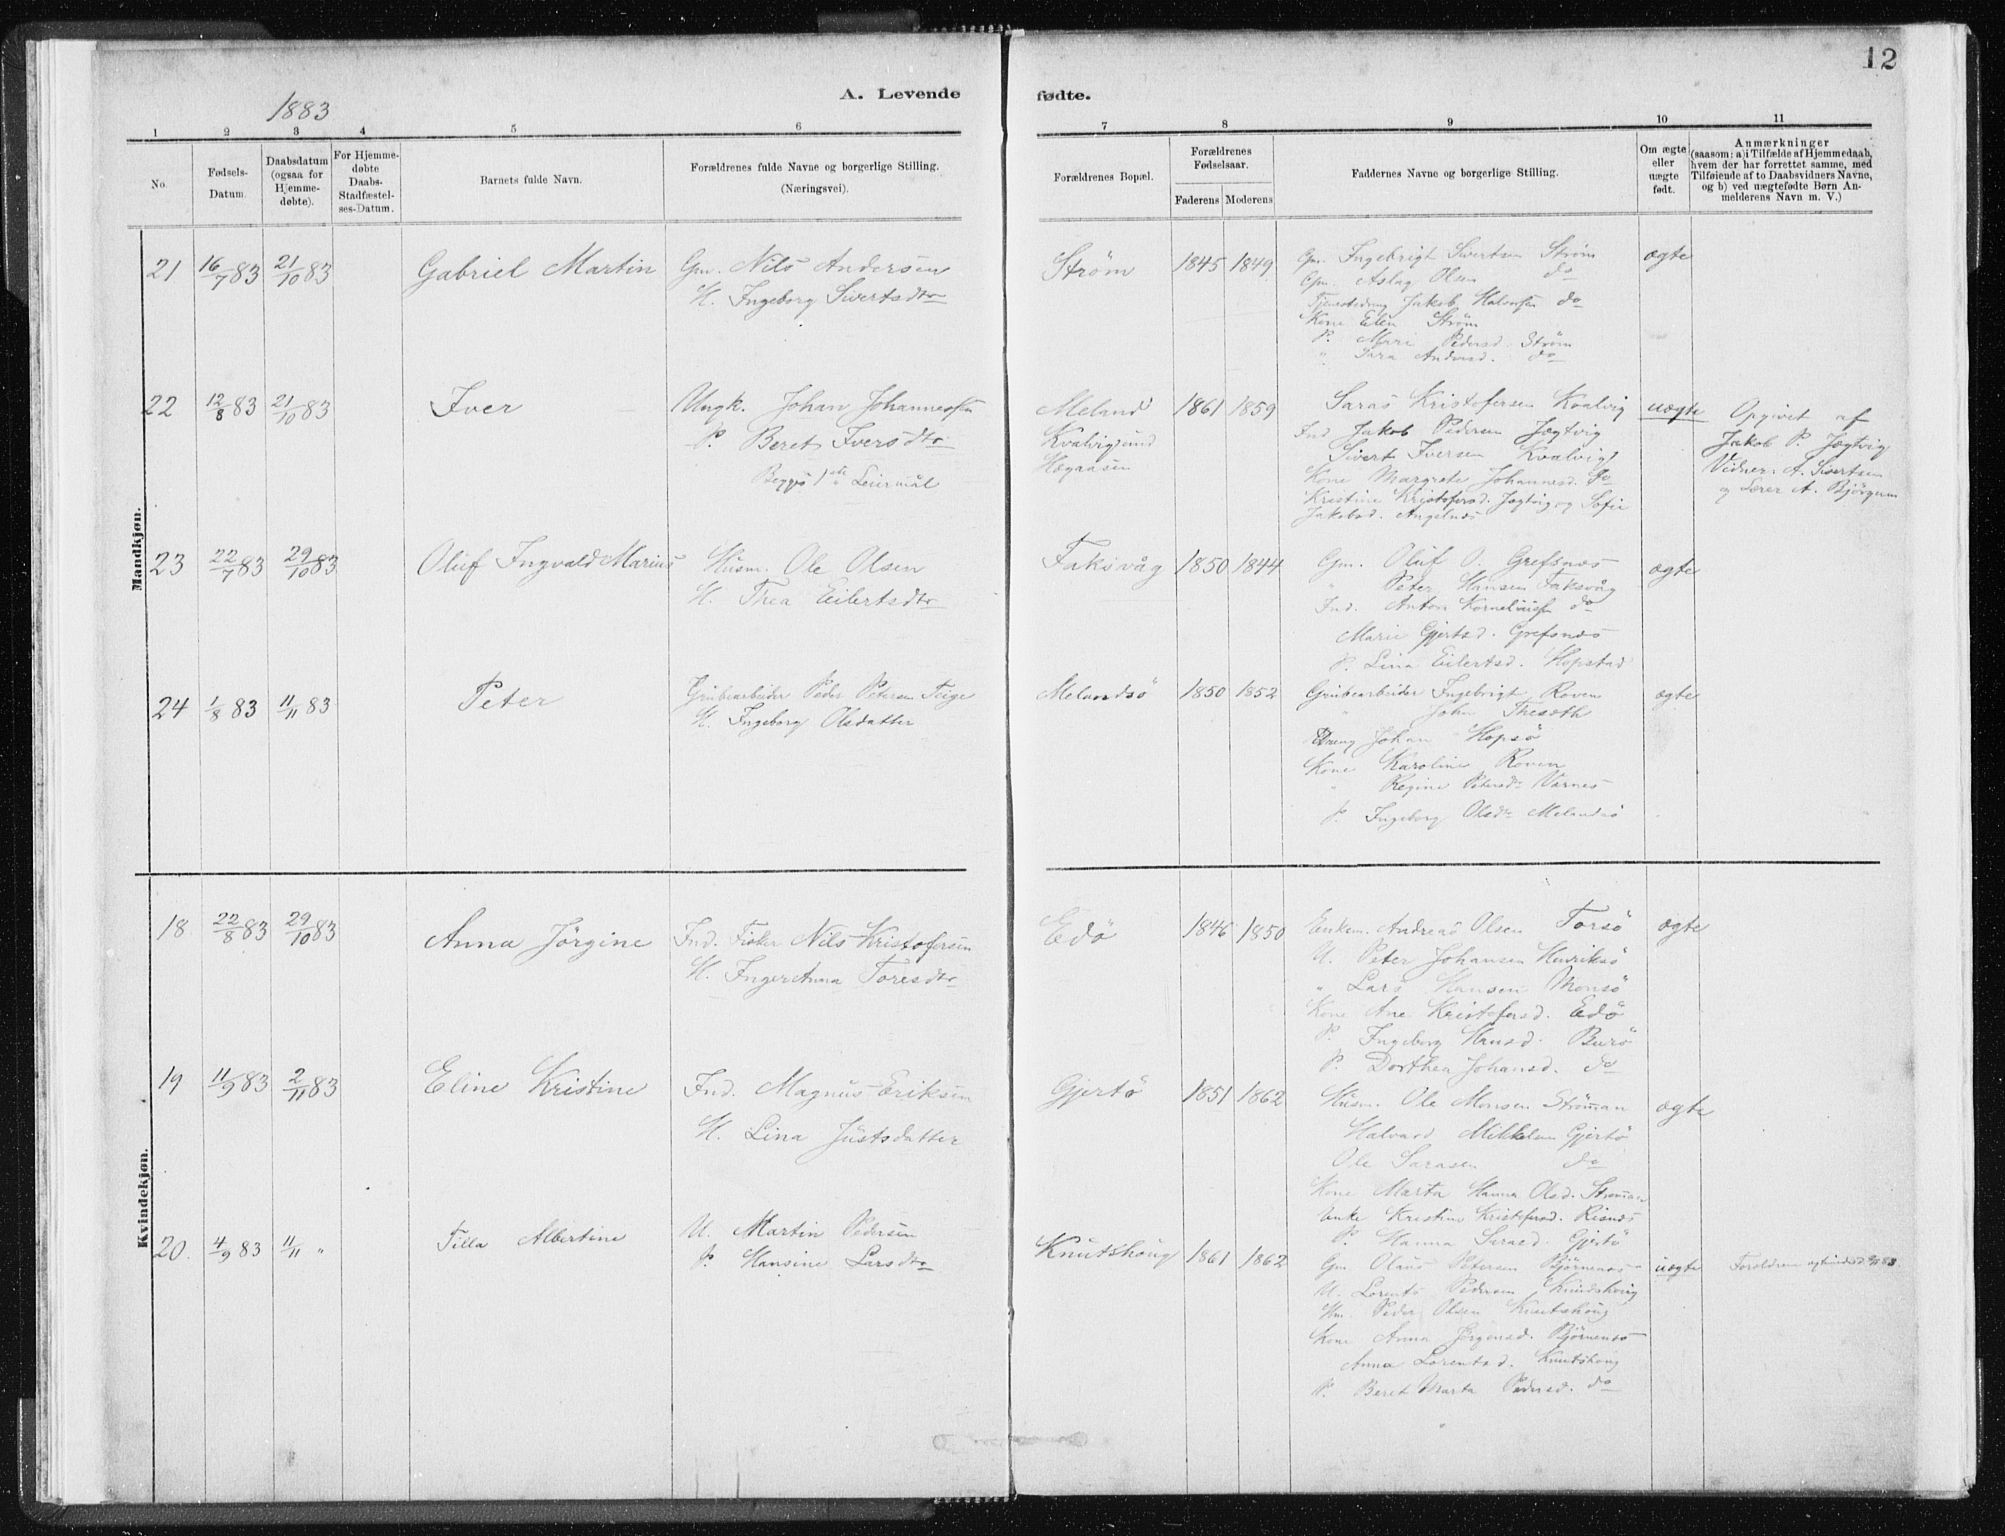 12
1883
A. Levende
fødte.
1 2 3 4 5 6
7 8 9 10 11
No.
Fødsels-
Datum.
Daabsdatum
(ogsaa for
Hjemme-
døbte).
For Hjemme-
døbte
Daabs-
Stadfæstel-
ses-Datum.
Barnets fulde Navn.
Forældrenes fulde Navne og borgerlige Stilling.
(Næringsvei).
Forældrenes Bopæl.
Forældrenes
Fødselsaar.
Faderens Moderens
Faddernes Navne og borgerlige Stilling.
Om ægte
eller
uægte
født.
Anmærkninger
(saasom: a) i Tilfælde af Hjemmedaab,
hvem der har forrettet samme, med
Tilføiende af to Daabsvidners Navne,
og b) ved uægtefødte Børn An-
melderens Navn m. V.)
Mandkjøn.
21 16/7 83 21/10 83 Gabriel Martin Gm. Nils Andersen
H. Ingeborg Sivertsdtr
Strøm 1845 1849 ægte
Gm. Ingebrigt Sivertsen Strøm
Gm. Aslag Olsen do
Jakob Halvorsen do
Kone Elen Strøm
P. Mari Pedersd. Strøm
" Sara Andersd. do
22 12/8 83 21/10 83 Iver Ungk. Johan Johannessen
P. Beret Iversdtr
Begges 1ste Leiermål
Meland
Kvalvigsund
Hegaasen
1861 1859 uægte
Saras Kristofersen Kvalvig
Ind Jakob Pedersen Jægtvig
Sivert Iversen Kvalvig
Kone Margrete Johannesd. do
Kristine Kristofersd. Jægtvig og Sofie
Jakobsd. Angelnes
Opgivet af
Jakob P. Jægtvig
Vidner: A. Sivertsen
og Lærer A. Bjørgum
23 22/7 83 29/10 83 Oluf Ingvald Marius Husm. Ole Olsen
H. Thea Eilertsdtr
Faksvåg 1850 1844 ægte
Gm. Oluf O. Grefsnes
" Peter Hansen Faksvåg
Ind. Anton Korneliusen do
Marie Gjertsd. Grefsnes
P. Lina Eilertsd. Hopstad
24 1/8 83 11/11 83 Peter Grubearbeider Peder Petersen Teige
H. Ingeborg Olsdatter
Melandsö 1850 1852 ægte
Grubearbeider Ingebrigt Roven
" John
Dreng Johan Hopsö
Kone Karoline Roven
" Regine Petersdr Varnes
P. Ingeborg Olsdr Melandsö
Kvindekjøn.
18 22/8 83 29/10 83 Anna Jörgine Ind. Fisker Nils Kristofersen
H. Inger Anna Toresdtr
Edö 1846 1850 ægte
Enkem. Andreas Olsen Torsö
U. Peter Johansen Henriksö
" Lars Hansen Monsö
Kone Ane Kristofersd. Edö
P. Ingeborg Hansd. Burö
P. Dorthea Johansd. do
19 11/9 83 2/11 83 Eline Kristine Ind. Magnus Eriksen
H. Lina Justsdatter
Gjertö 1851 1862 ægte
Husm. Ole Monsen Strömman
Halvard Mikkelsen Gjertö
Ole Sarasen do
Kone Marta Hanna Olsd. Strömman
Enke Kristine Kristofersd. Risnes
P. Hanna Sarasd. Gjertö
20. 4/9 83 11/11 " Tilla Albertine U. Martin Pedersen
P. Hansine Larsdtr
Knutshoug 1861 1862 uægte
Gm Olaus Petersen Bjørnenes
U. Lorents Pedersen Knutshoug
Hm. Peder Olsen Knutshoug
Kone Anna Jørgensd. Bjørnenes
Anna Lorentsd. Knutshoug
P. Beret Marta Pedersd. do
Forældrene